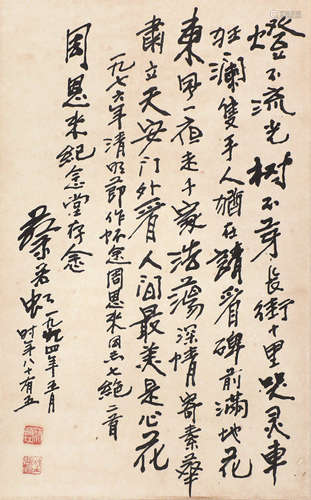 灯不流光树不芽长街十里哭灵车
狂澜只手人犹在请看碑前满地花
東風一夜走千家浩荡深情寄素華
肃立天安门外看人间最美是心花
一九七六年清明节作怀念周恩来同志七絶二首
周恩来纪念堂存念
蔡若虹一九九四年五月
时年八十有五